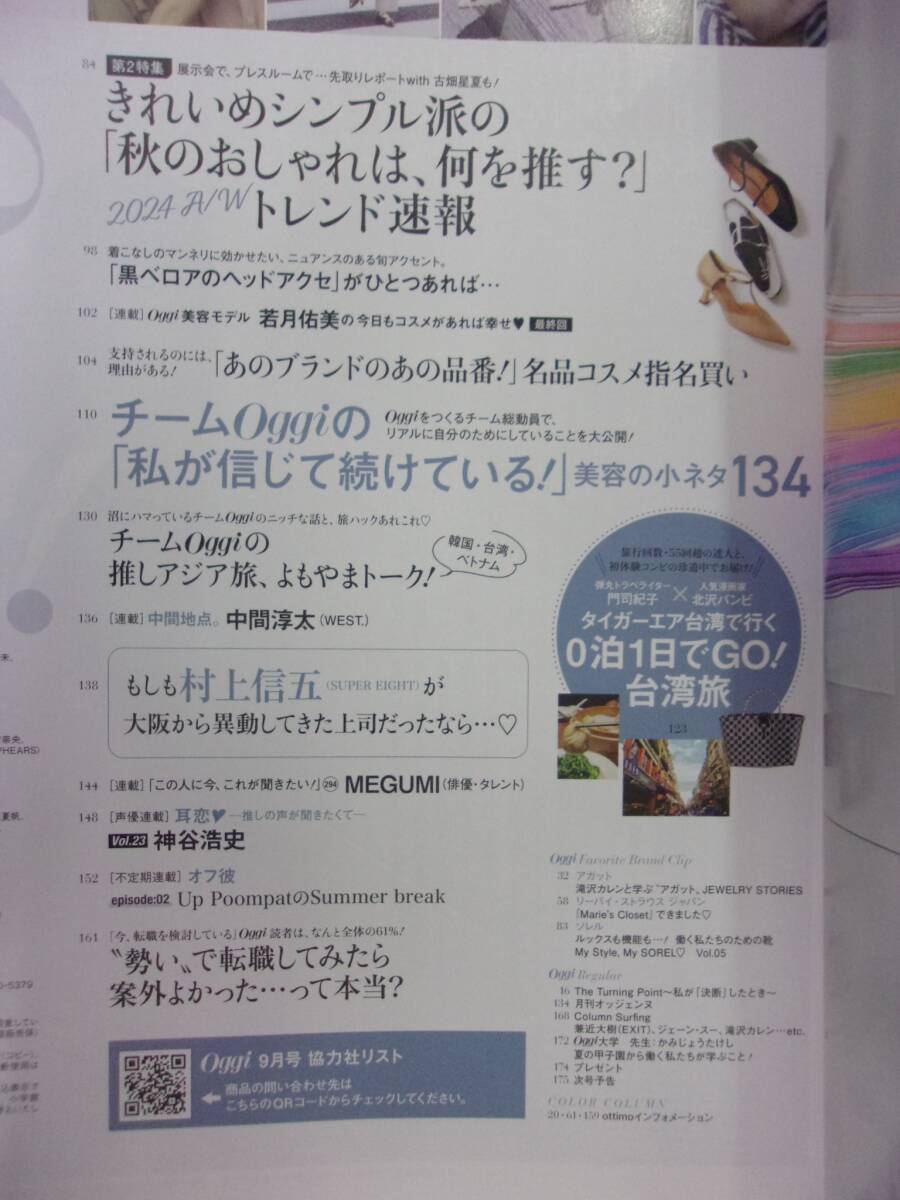 84 第2特集 展示会で、プレスルームで…先取りレポートwith 古畑星夏も!
きれいめシンプル派の
「秋のおしゃれは、何を推す?」
2024 A/W トレンド速報
98 着こなしのマンネリに効かせたい、ニュアンスのある旬アクセント。
「黒ベロアのヘッドアクセ」がひとつあれば…
102 [連載] Oggi 美容モデル 若月佑美の今日もコスメがあれば幸せ♥ 最終回
104 支持されるのには、
理由がある!
「あのブランドのあの品番!」名品コスメ指名買い
110 チームOggiの
Oggiをつくるチーム総動員で、
リアルに自分のためにしていることを大公開!
「私が信じて続けている!」美容の小ネタ134
130 沼にハマっているチームOggiのニッチな話と、旅ハックあれこれ♡
チームOggiの
推しアジア旅、よもやまトーク!
韓国・台湾・
ベトナム
136 [連載] 中間地点。 中間淳太(WEST.)
138 もしも村上信五(SUPER EIGHT)が
大阪から異動してきた上司だったなら…♡
144 [連載]「この人に今、これが聞きたい!」294 MEGUMI(俳優・タレント)
148 [声優連載] 耳恋♥ ―推しの声が聞きたくて―
Vol.23 神谷浩史
152 [不定期連載] オフ彼
episode:02 Up PoompatのSummer break
161 「今、転職を検討している」Oggi 読者は、なんと全体の61%!
〝勢い〟で転職してみたら
案外よかった…って本当?
Oggi 9月号 協力社リスト
商品の問い合わせ先は
こちらのQRコードからチェックしてください。
旅行回数・55回超の達人と、
初体験コンビの珍道中でお届け!
弾丸トラベライター
門司紀子
×
人気漫画家
北沢バンビ
タイガーエア台湾で行く
0泊1日でGO!
台湾旅
123
Oggi Favorite Brand Clip
32 アガット
滝沢カレンと学ぶ"アガット、JEWELRY STORIES
58 リーバイ・ストラウス ジャパン
「Marie's Closet」できました♡
83 ソレル
ルックスも機能も…! 働く私たちのための靴
My Style, My SOREL♡ Vol.05
Oggi Regular
16 The Turning Point〜私が「決断」したとき〜
134 月刊オッジェンヌ
168 Column Surfing
兼近大樹(EXIT)、ジェーン・スー、滝沢カレン…etc.
172 Oggi大学 先生:かみじょうたけし
夏の甲子園から働く私たちが学ぶこと!
174 プレゼント
175 次号予告
COLOR COLUMN
20・61・159 ottimoインフォメーション